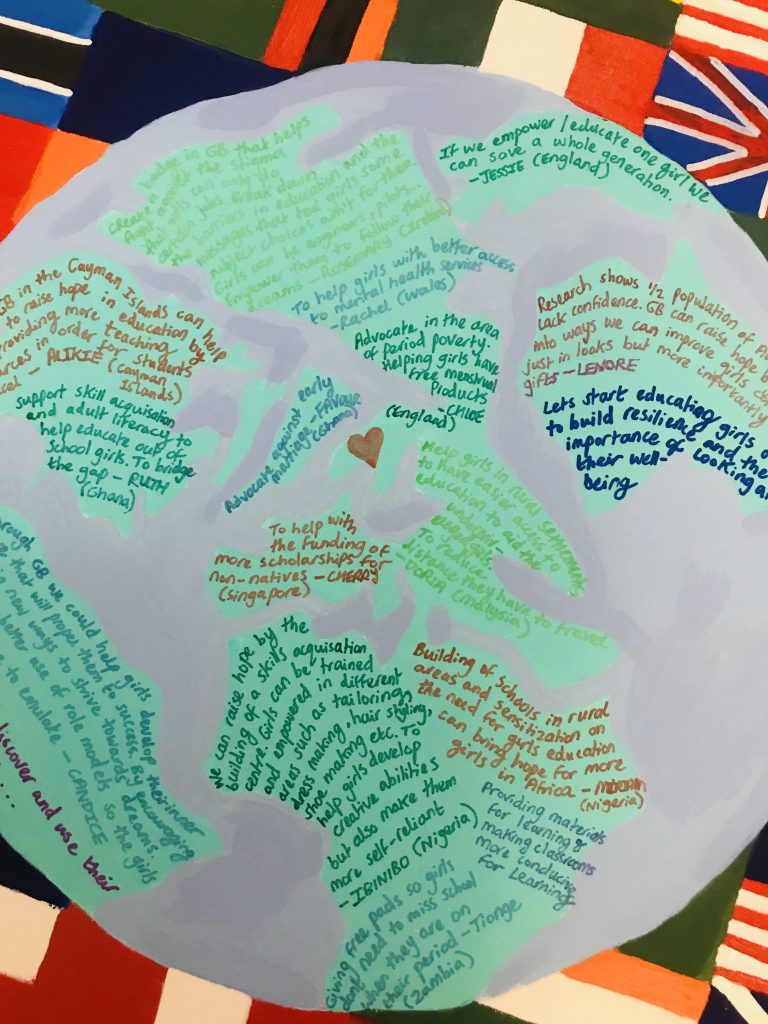 If we empower / educate one girl we
can save a whole generation.
- JESSIE (England)
Create a badge in GB that helps
fight against the stigma
that girls can only do
certain jobs. Break down
the barriers in education, and the
the messages that tell girls some
subject choices aren't for them.
Girls can be engineers, pilots...
Empower them to follow their
dreams - ROSEMARY (Ireland)
To help girls with better access
to mental health services
- Rachel (Wales)
Advocate in the area
of period poverty.
Helping girls have
free menstrual
Products
- CHLOE
(England)
GB in the Cayman Islands can help
to raise hope in education by
providing more teaching
in order for students
- ALIKIE (Cayman
Islands)
support skill acquisition
and adult literacy to
help educate out of
School girls. To bridge
the gap - RUTH
(Ghana)
Advocate against early
marriage - FAVOUR
(Ghana)
Research shows 1/2 population of
Lack confidence. GB can raise hope
into ways we can improve girls
just in looks but more importantly
gifts - LENORE
Lets start educating girls
to build resilience and the
importance of Looking
their well-
being
Help girls in rural settlements
to have easier access to
education, to aid the
underpri-
To reduce
distance they have to travel
- DORIA (malaysia)
To help with
the funding of
more scholarships for
non-natives - CHERRY
(Singapore)
through GB we could help girls develop their inner
that will propel them to success. By encouraging
new ways to strive towards dreams.
better use of role models so the girls
to emulate - CANDICE
discover and use their
....
We can raise hope by the
building of a skills acquisition
centre. Girls can be trained
and empowered in different
areas such as tailoring,
dress making, hair styling,
shoe making etc. To
help girls develop
creative abilities
but also make them
more self-reliant
- IBINIBO (Nigeria)
Building of Schools in rural
areas and sensitization on
the need for girls education
can bring hope for more
girls in Africa -
(Nigeria)
Providing materials
for learning &
making classrooms
more conducive
for Learning
Giving free pads so girls
dont need to miss school
when they are on
their period - Tionge
(Zambia)